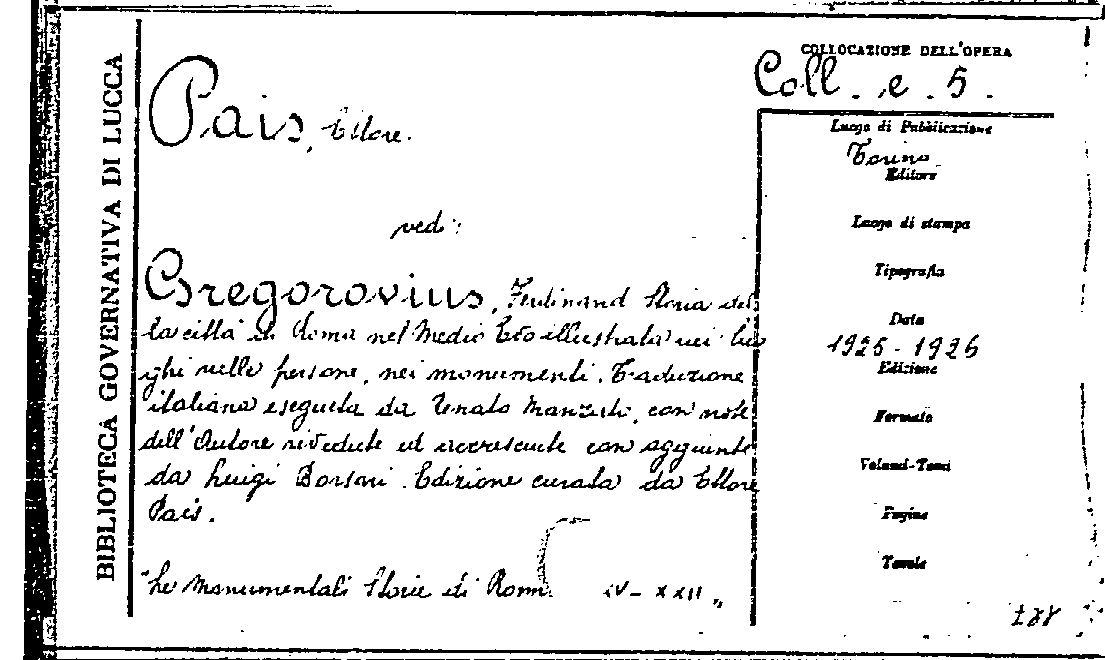 BIBLIOTECA GOVERNATIVA DI LUCCA
COLLOCAZIONE DELL'OPERA
Coll. e. 5.
Pais, Ettore.
vedi:
Gregorovius, Ferdinand Storia del
la città di Roma nel Medio Evo illustrata nei luo
ghi nelle persone, nei monumenti. Traduzione
italiana eseguita da Renato Manzato, con note
dell'Autore rivedute ed accresciute con aggiunte
da Luigi Borsari. Edizione curata da Ettore
Pais.
"Le Monumentali Storie di Roma IV-XXII"
Luogo di Pubblicazione
Torino
Editore
Luogo di stampa
Tipografia
Data
1925-1926
Edizione
Formato
Volumi-Tomi
Pagine
Tavole